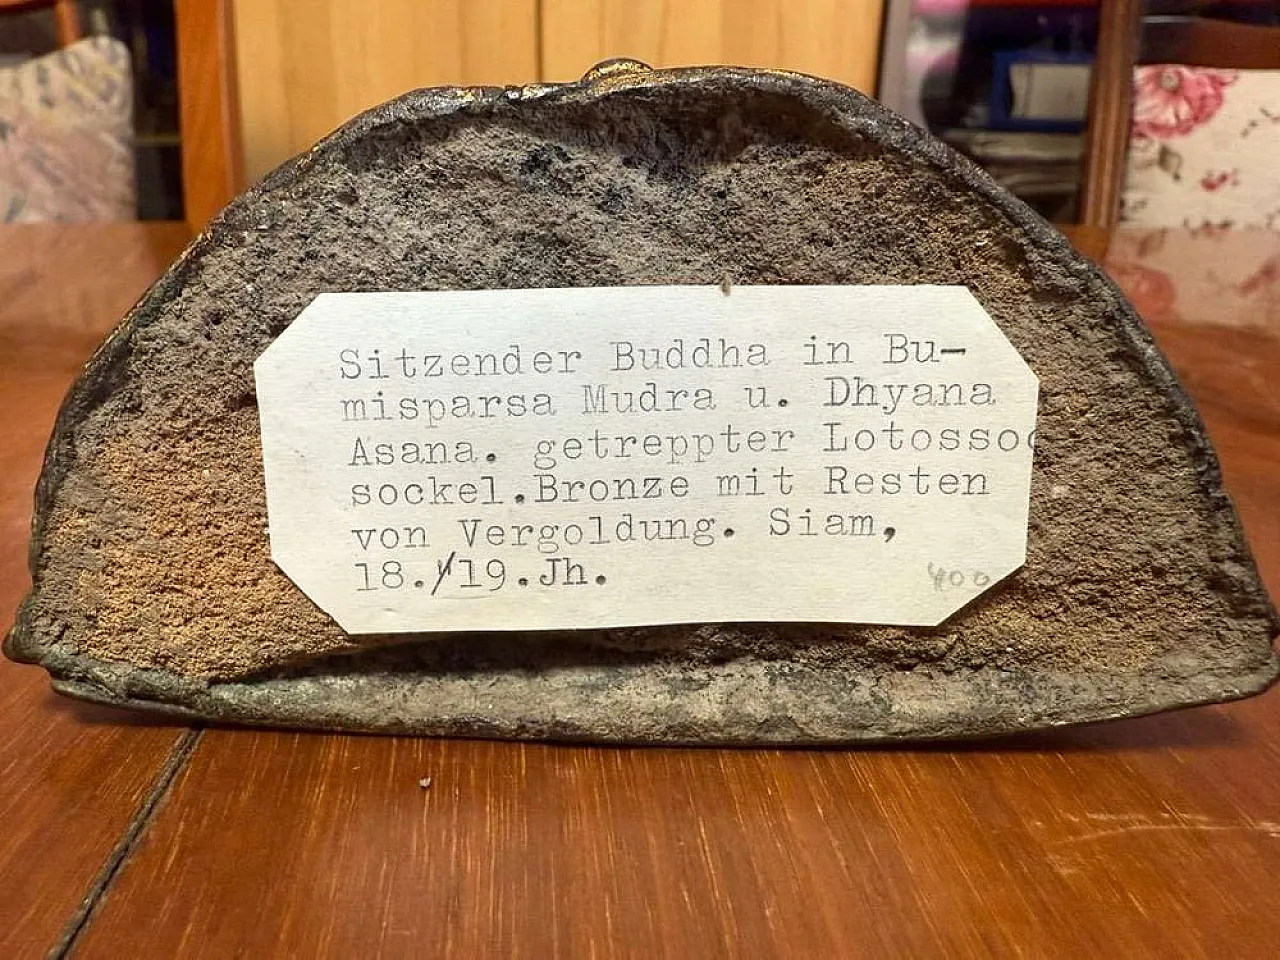 Sitzender Buddha in Bu-
misparsa Mudra u. Dhyana
Asana. getreppter Lotossoc
sockel.Bronze mit Resten
von Vergoldung. Siam,
18./19.Jh.
400